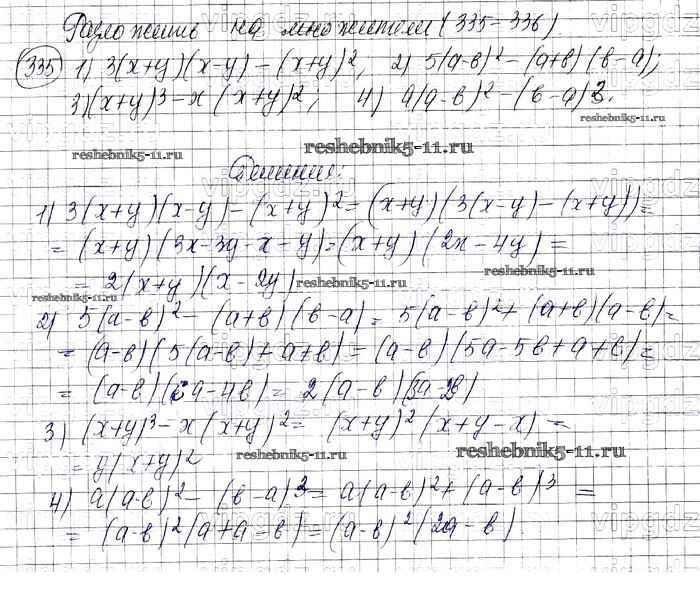 Разложение на множители (335-336)
335 1) 3(x+y)(x-y) - (x+y)^2; 2) 5(a-b)^2 - (a+b)(b-a);
3) (x+y)^3 - x(x+y)^2; 4) a(a-b)^2 - (b-a)^3.
reshebnik5-11.ru reshebnik5-11.ru
Решение:
1) 3(x+y)(x-y) - (x+y)^2 = (x+y)(3(x-y) - (x+y)) =
= (x+y)(3x-3y-x-y) = (x+y)(2x-4y) =
= 2(x+y)(x-2y)
reshebnik5-11.ru reshebnik5-11.ru reshebnik5-11.ru
2) 5(a-b)^2 - (a+b)(b-a) = 5(a-b)^2 + (a+b)(a-b) =
= (a-b)(5(a-b)+a+b) = (a-b)(5a-5b+a+b) =
= (a-b)(6a-4b) = 2(a-b)(3a-2b)
3) (x+y)^3 - x(x+y)^2 = (x+y)^2(x+y-x) =
= y(x+y)^2
reshebnik5-11.ru reshebnik5-11.ru
4) a(a-b)^2 - (b-a)^3 = a(a-b)^2 + (a-b)^3 =
= (a-b)^2(a+a-b) = (a-b)^2(2a-b)
vipgdz